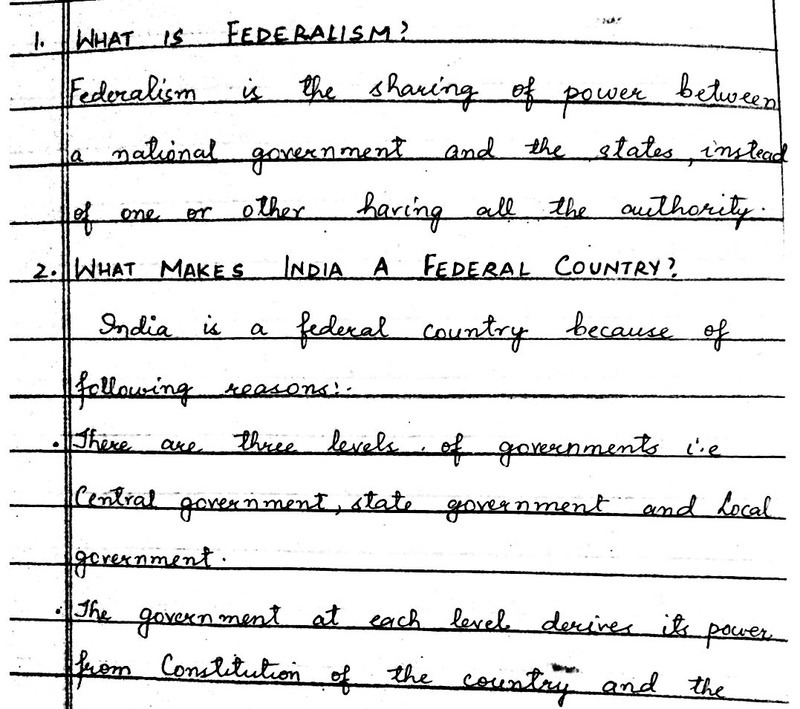 1. WHAT IS FEDERALISM?
Federalism is the sharing of power between
a national government and the states, instead
of one or other having all the authority.
2. WHAT MAKES INDIA A FEDERAL COUNTRY?
India is a federal country because of
following reasons:-
• There are three levels of governments i.e
Central government, state government and Local
government.
• The government at each level derives its power
from Constitution of the country and the